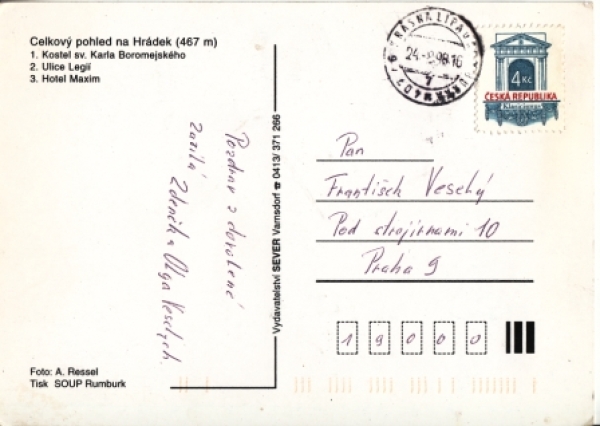 Celkový pohled na Hrádek (467 m)
1. Kostel sv. Karla Boromejského
2. Ulice Legií
3. Hotel Maxim
Pozdrav z dovolené
zasílá Zdeněk a Olga Veselých.
Foto: A. Ressel
Tisk SOUP Rumburk
Vydavatelství SEVER Varnsdorf ☎ 0413/ 371 266
ČESKÁ LÍPA
24.-8.98-16
4 Kč
ČESKÁ REPUBLIKA
Pan
František Veselý
Pod strojírnami 10
Praha 9
19000